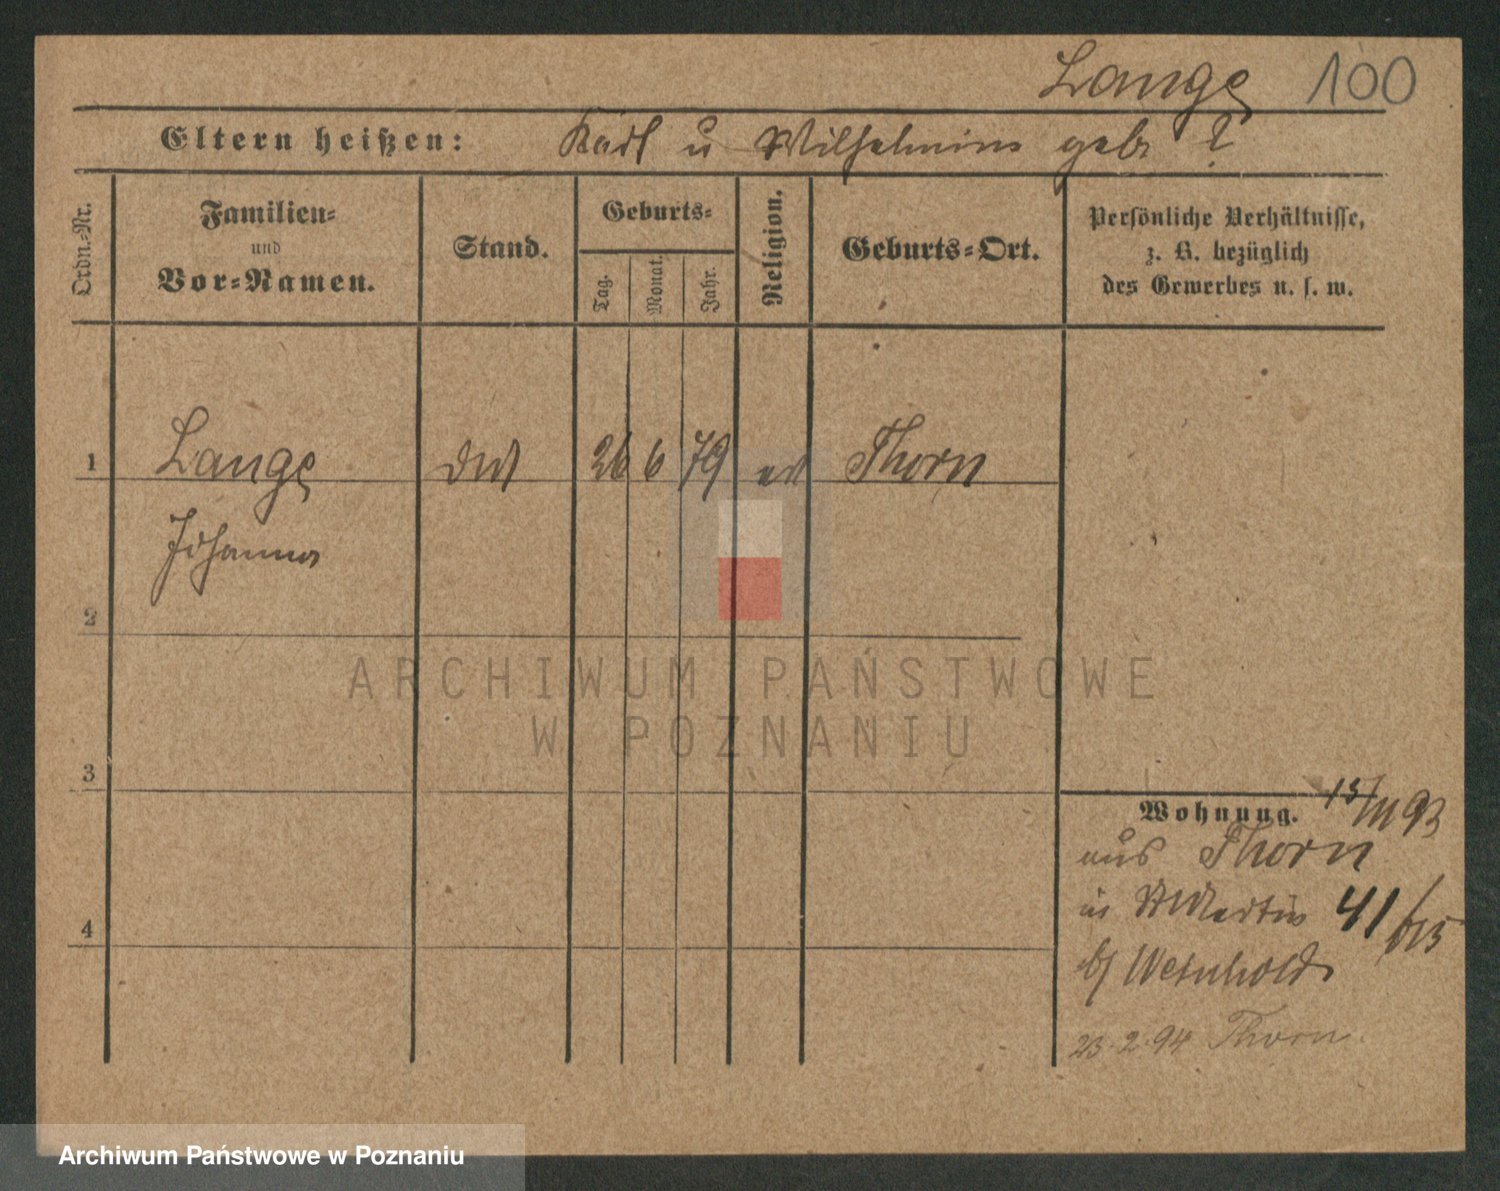 Lange 100
Eltern heißen: Karl u Wilhelmine geb ?
Ordn.-Nr.
Familien-
und
Vor-Namen.
Stand.
Geburts-
Tag.
Monat.
Jahr.
Religion.
Geburts-Ort.
Persönliche Verhältnisse,
z. B. bezüglich
des Gewerbes u. s. w.
1 Lange 26 6 79 Thorn
Johanna
2
3
4
Wohnung. 93
aus Thorn
in St Martin 41
b/ Weinhold
23.2.94 Thorn.
ARCHIWUM PAŃSTWOWE
W POZNANIU
Archiwum Państwowe w Poznaniu